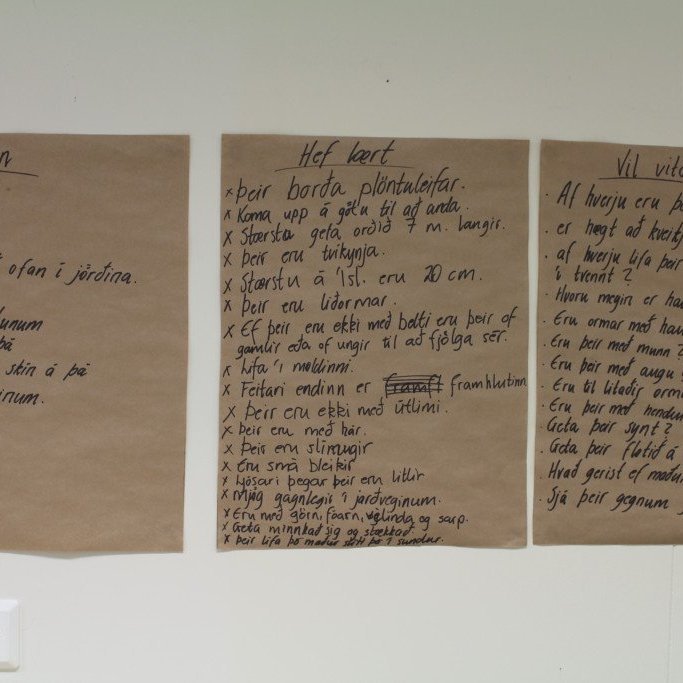 n
ofan í jörðina.
unum
þá
skin á þá
inum.
Hef lært
x þeir borða plöntuleifar.
x Koma upp á götu til að anda.
x Stærstu geta orðið 7 m. langir.
x þeir eru tvíkynja.
x Stærstu á Ísl. eru 20 cm.
x þeir eru liðormar.
x Ef þeir eru ekki með belti eru þeir of
gamlir eða of ungir til að fjölga sér.
x Lifa í moldinni.
x Feitari endinn er framhlutinn
x Þeir eru ekki með útlimi.
x Þeir eru með hár.
x Þeir eru slímugir
x Eru smá bleikir
x Ljósari þegar þeir eru litlir
x Mjög gagnlegir í jarðveginum.
x Eru með görn, fóarn, vélinda og sarp.
x Geta minnkað sig og stækkað.
x Þeir lifa þó maður slíti þá í sundur.
Vil vita
· Af hverju eru þe
· er hægt að kveikj
· af hverju lifa þeir
í tvennt?
· Hvoru megin er hau
· Eru ormar með hau
· Eru þeir með munn?
· Eru þeir með augu
· Eru til litaðir orm
· Eru þeir með hendur
· Geta þeir synt?
· Geta þeir flotið á
· Hvað gerist ef maður
· Sjá þeir gegnum